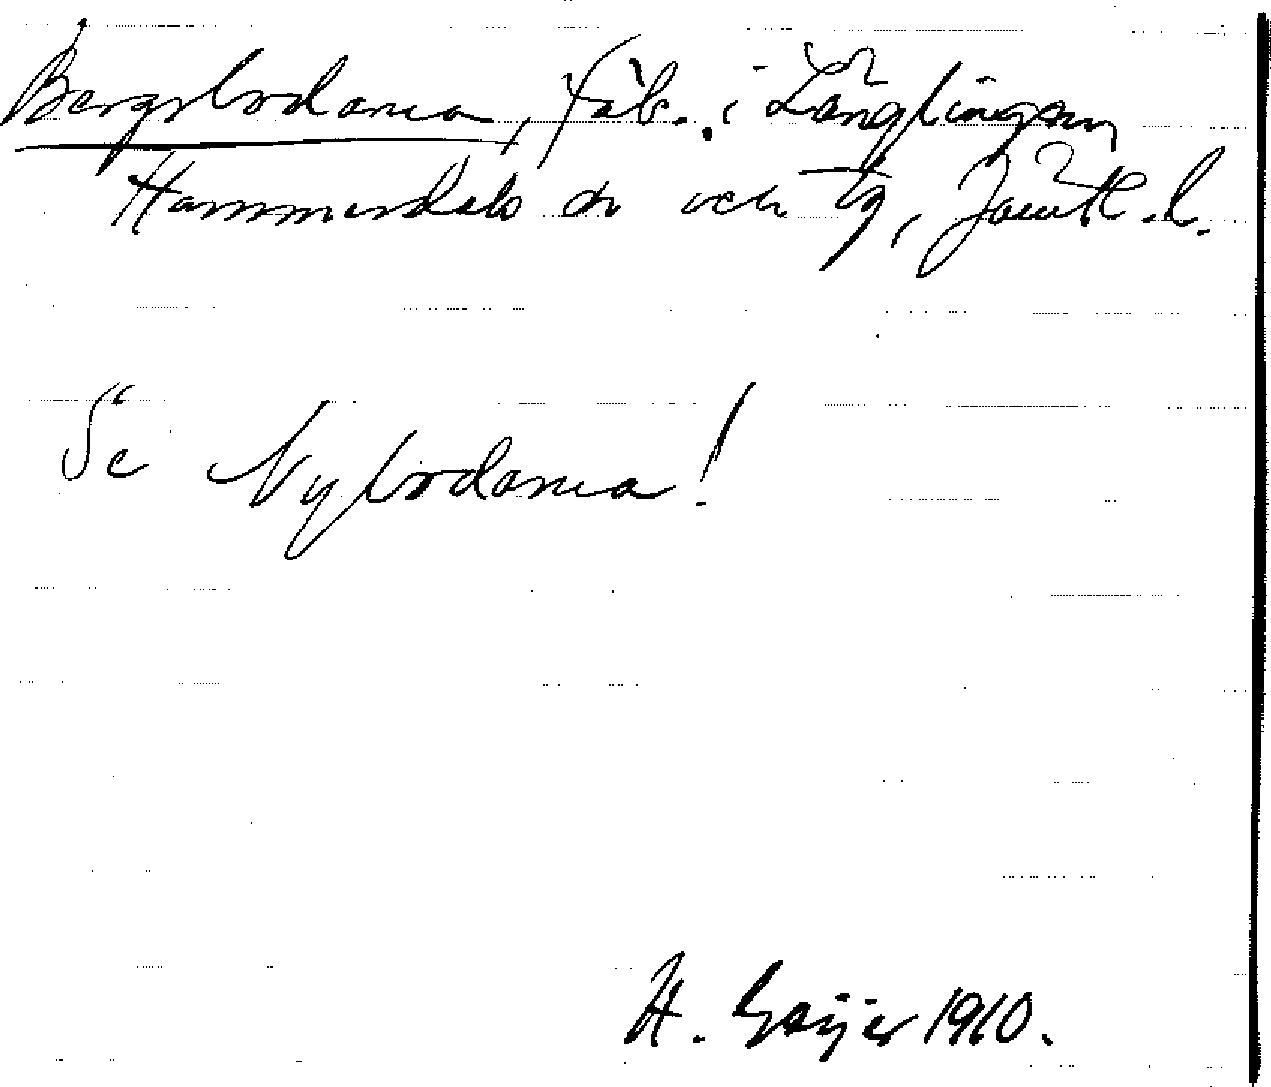 Bergsbodarna, fäb. i Långlingen,
Hammerdals sn och tg, Jämtl. l.
Se Nybodarna!
H. Geijer 1910.